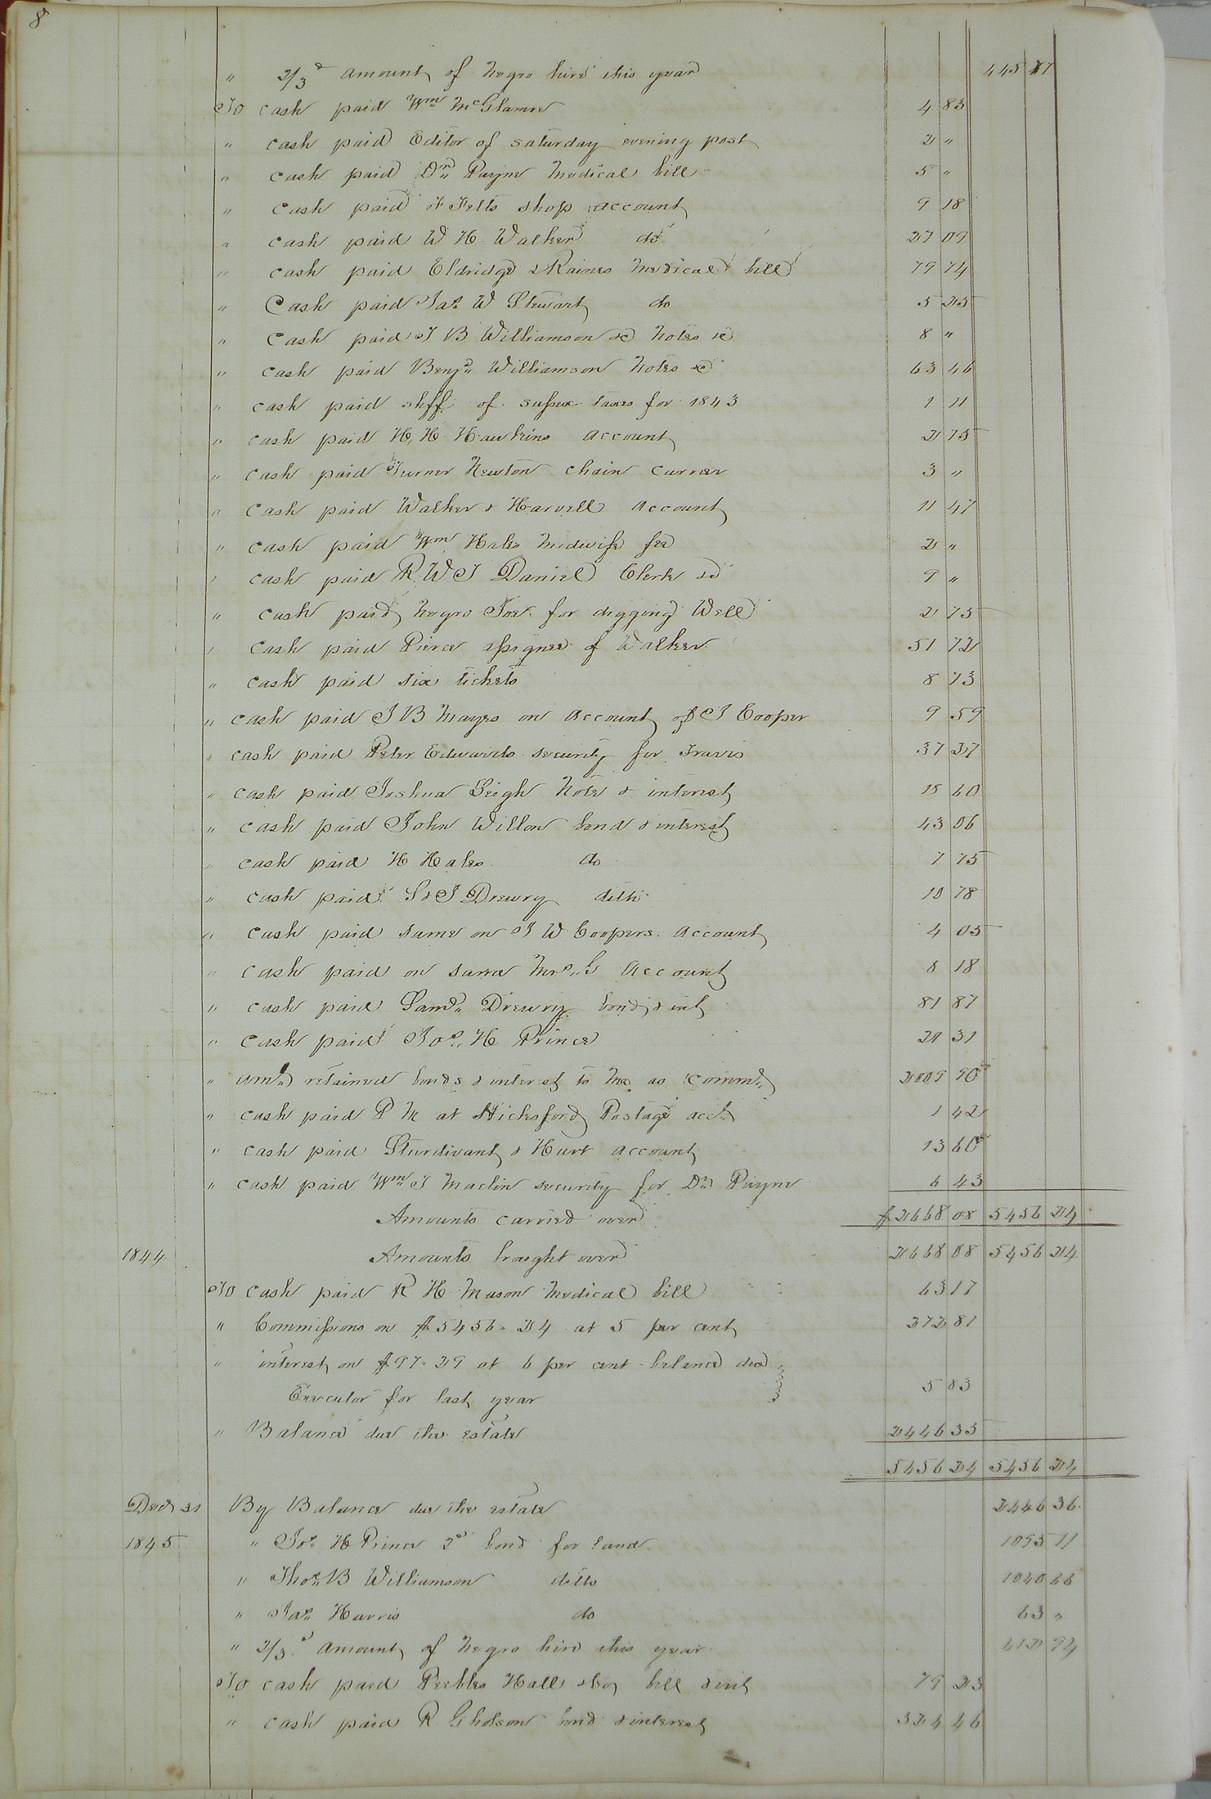 8
" 2/3ds amount of negro hire this year 445 27
To cash paid Wm McGlamre 4 83
" cash paid Editor of saturday evening post 2 "
" cash paid Dr. Payne Medical bill 5 "
" cash paid Felts shop account 9 18
" cash paid W H Walker do 27 09
" cash paid Eldridge & Raines Medical bill 79 74
" Cash paid Jas W Stewart do 5 25
" cash paid J B Williamson &c notes &c 8 "
" cash paid Benja. Williamson notes &c 63 46
" cash paid shff of sussex taxes for 1843 1 11
" cash paid H, H Hawkins account 2 75
" cash paid Turner Newton chain carrier 3 "
" cash paid Walker & Harwell account 11 47
" cash paid Wm Hales midwife fee 2 "
" cash paid R W J Daniel Clerk &c 9 "
" cash paid negro Joe for digging Well 2 75
" cash paid Pierce assignee of Walker 51 72
" cash paid six tickets 8 73
" cash paid J B Mayes on account of J Cooper 9 59
" cash paid Peter Edwards security for Travis 37 37
" cash paid Joshua Leigh Note & interest 18 60
" cash paid John Willon bond & interest 43 06
" cash paid H Hales do 7 75
" cash paid S & J Drewry ditto 10 78
" cash paid same on J W Coopers account 4 05
" cash paid on same account 8 18
" cash paid Saml. Drewry bond & int 81 87
" cash paid Jos. H Prince 20 31
" amt. retained bonds & interest to me as commr. 90
" cash paid P M at Hicksford Postage acct. 1 42
" cash paid Sturdivant & Hurt account 13 60
" cash paid Wm. J Maclin security for Dr. Payne 6 43
Amounts carried over $2668 08 5456 24
1844 Amounts brought over 2668 08 5456 24
To cash paid R H Mason Medical bill 63 17
" Commissions on $5456.24 at 5 per cent 272 81
" interest on $97.29 at 6 per cent balance due
Executor for last year 5 83
" Balance due the estate 2446 35
5456 24 5456 24
Decr 31 By Balance due the estate 2446 36
1845 " Jos. H Prince 2d bond for land 1095 11
" Thos. B Williamson ditto 1040 66
" Jas. Harris do 63 "
" 2/3ds amount of negro hire this year 412 94
To cash paid Peebles Hall shop bill & int 79 23
" cash paid R Gholson bond & interest 324 46